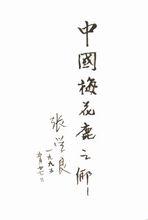 中國梅花鹿之鄉
張學良
一九九五